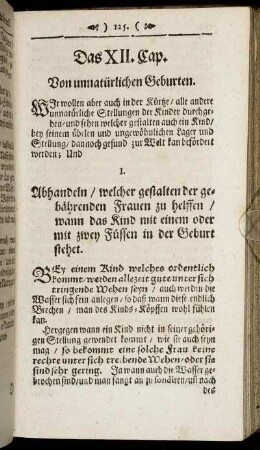 ) 125. (
Das XII. Cap.
Von unnatürlichen Geburten.
WIr wollen aber auch in der Kürtze / alle andere
unnatürliche Stellungen der Kinder durchge-
hen / und sehen welcher gestalten auch ein Kind /
bey seinem übelen und ungewöhnlichen Lager und
Stellung / dannoch gesund zur Welt kan befördert
werden; Und
I.
Abhandeln / welcher gestalten der ge-
bährenden Frauen zu helffen /
wann das Kind mit einem oder
mit zwey Füssen in der Geburt
stehet.
BEy einem Kind welches ordentlich
kommt / werden allezeit gute unter sich
tringende Wehen seyn / auch werden die
Wasser sich fein anlegen / so daß wann diese endlich
Brechen / man des Kinds-Köpffen wohl fühlen
kan.
Hergegen wann ein Kind nicht in seiner gehöri-
gen Stellung gewendet kommt / wie sie auch seyn
mag / so bekommt eine solche Frau keine
rechte unter sich treibende Wehen / oder sie
sind sehr gering. Ja wann auch die Wasser ge-
brochen sind / und man fangt an zu sondiren / un nach
des